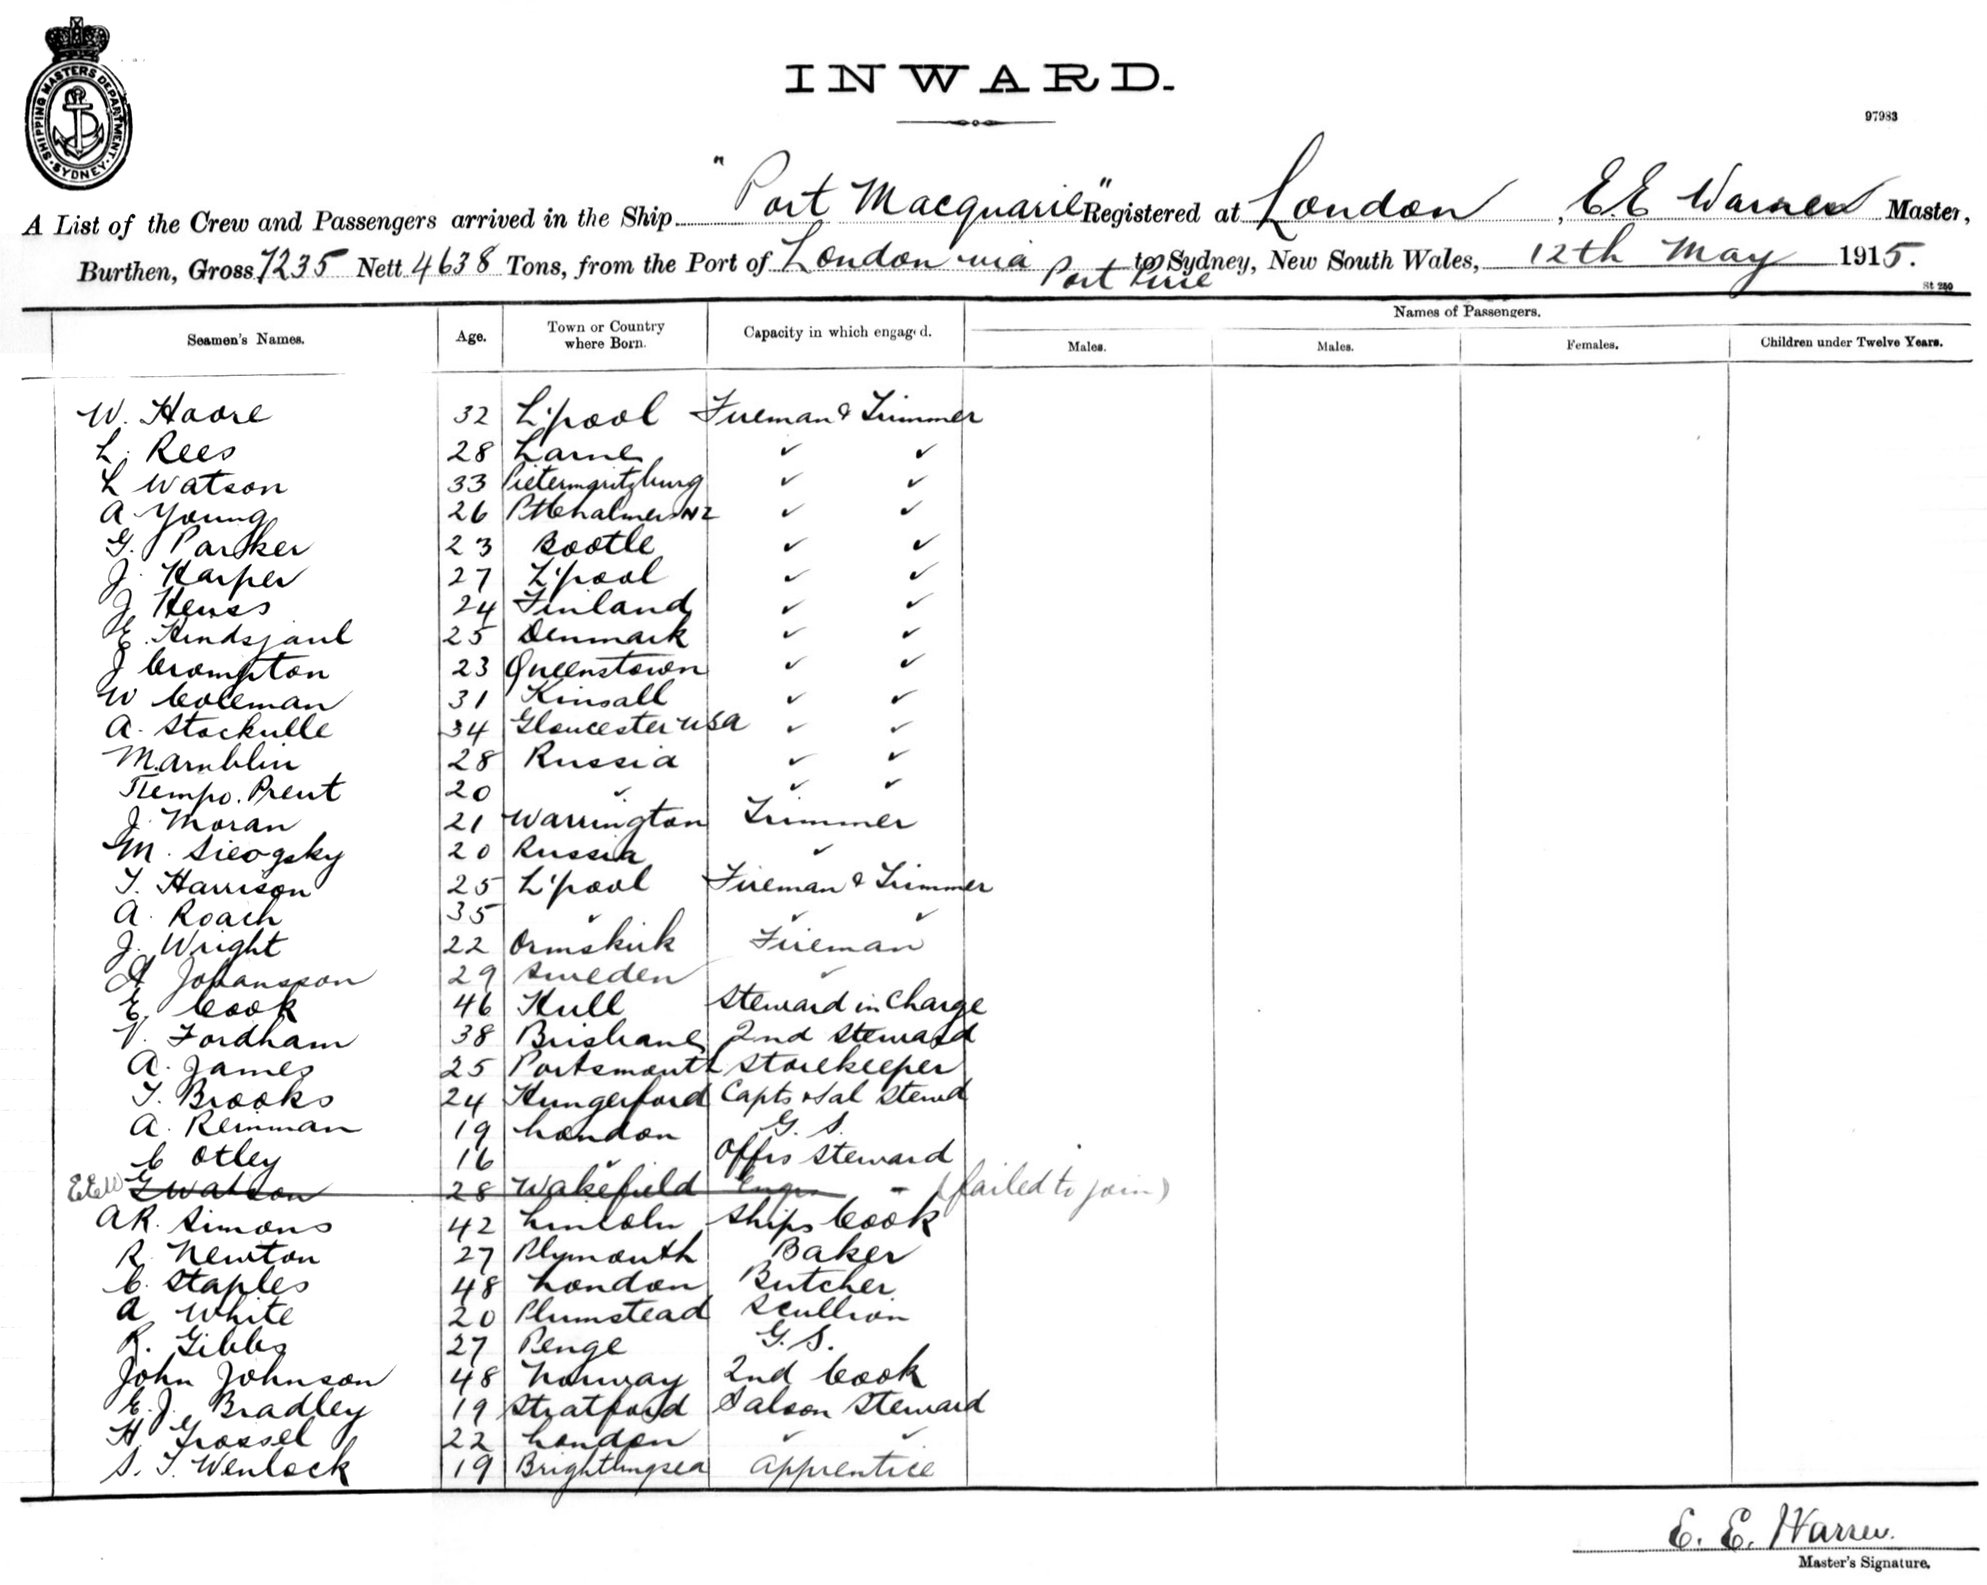 SHIPPING MASTERS DEPARTMENT · SYDNEY ·
INWARD.
97983
A List of the Crew and Passengers arrived in the Ship "Port Macquarie" Registered at London, E. E. Warren Master,
Burthen, Gross 7235 Nett 4638 Tons, from the Port of London via Port Pirie to Sydney, New South Wales, 12th May 1915.
St 250
Seamen's Names. Age. Town or Country where Born. Capacity in which engaged. Names of Passengers.
Males. Males. Females. Children under Twelve Years.
W. Hoare 32 L'pool Fireman & Trimmer
L. Rees 28 Larne ✓ ✓
L Watson 33 Pietermaritzburg ✓ ✓
A Young 26 Pt Chalmers NZ ✓ ✓
G. Parker 23 Bootle ✓ ✓
J. Harper 27 L'pool ✓ ✓
J. Henss 24 Finland ✓ ✓
E. Hindsjaul 25 Denmark ✓ ✓
J Crompton 23 Queenstown ✓ ✓
W Coleman 31 Kinsall ✓ ✓
A. Stockville 34 Gloucester USA ✓ ✓
M. 28 Russia ✓ ✓
20 ✓ ✓ ✓
J. Moran 21 Warrington Trimmer
M. Sieogsky 20 Russia ✓
T. Harrison 25 L'pool Fireman & Trimmer
A. Roach 35 ✓ ✓ ✓
J. Wright 22 Ormskirk Fireman
A Johansson 29 Sweden ✓
E. Cook 46 Hull Steward in Charge
V. Fordham 38 Brisbane 2nd Steward
A. James 25 Portsmouth Storekeeper
T. Brooks 24 Hungerford Capts & Sal Stewd
A. Reinman 19 London G. S.
C Otley 16 ✓ Offrs Steward
EEW G Watson 28 Wakefield Engrs - (failed to join)
A R. Simons 42 Lincoln Ships Cook
R. Newton 27 Plymouth Baker
C. Staples 48 London Butcher
A White 20 Plumstead Scullion
R. Gibbs 27 Penge G. S.
John Johnson 48 Norway 2nd Cook
E. J. Bradley 19 Stratford Saloon Steward
H Grossel 22 London ✓ ✓
S. T. Wenlock 19 Brightlingsea Apprentice
E. E. Warren.
Master's Signature.